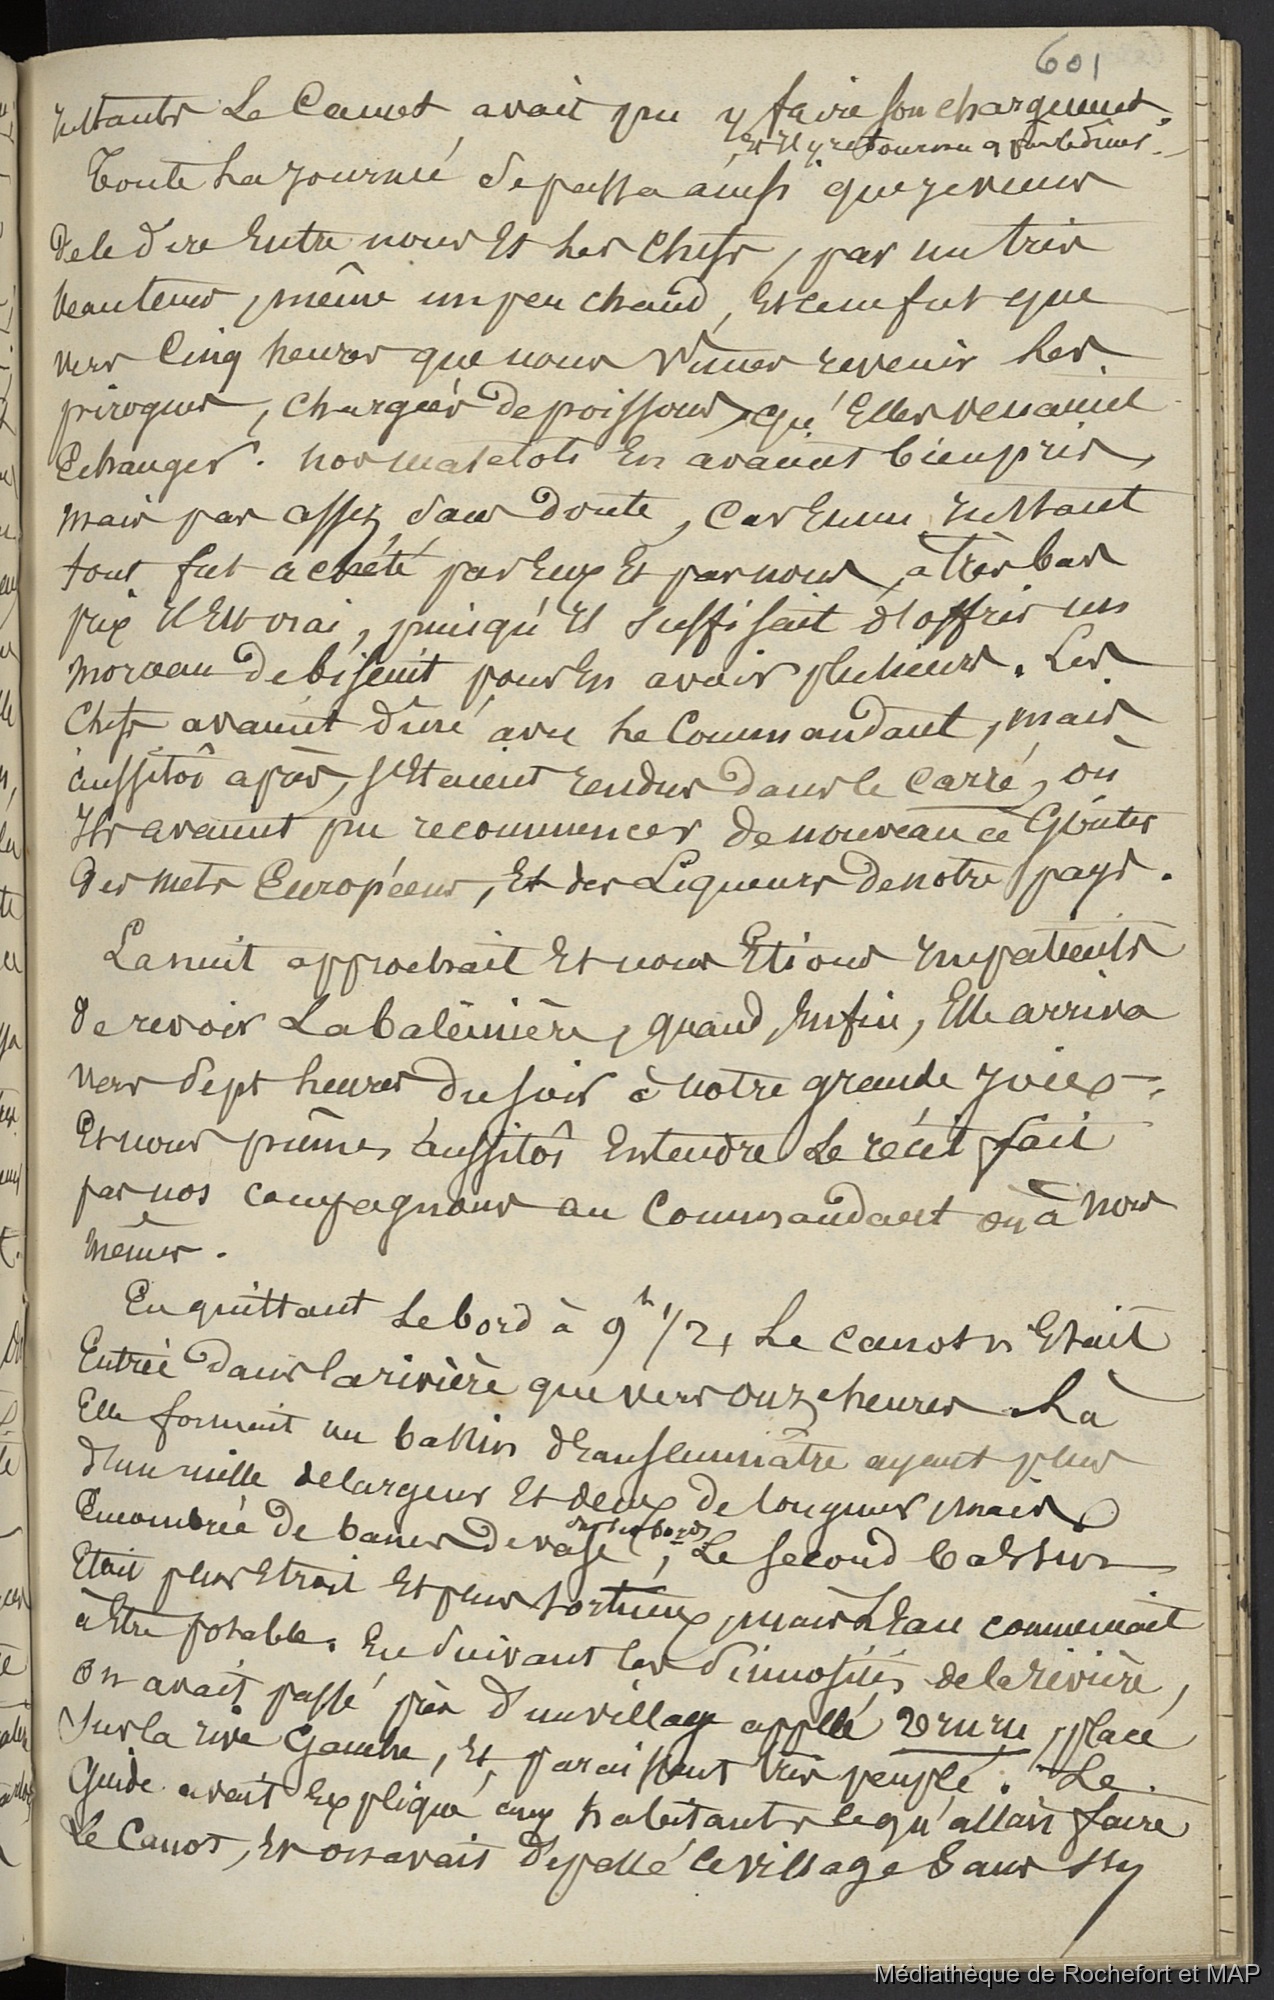 601
instants Le Canot avait pu y faire son chargement.
Et il y retourna après le diner.
Toute La journée se passa ainsi que je viens
de le dire Entre nous Et Les Chefs, par un très
beau tems, même un peu chaud, Et ce ne fut que
vers Cinq heures que nous vimes revenir Les
pirogues, chargées de poissons qu'Elles venaient
Echanger. nos matelots En avaient bien pris,
mais pas assez sans doute, Car En un instant
tout fut acheté par Eux Et par nous, à très bas
prix il Est vrai, puisqu'il suffisait d'offrir un
morceau de biscuit pour En avoir plusieurs. Les
Chefs avaient diné avec Le Commandant, mais
aussitôt après, s'Etaient rendus dans le carré, où
ils avaient pu recommencer de nouveau à Goûter
des mets Européens, Et des Liqueurs de notre pays.
La nuit approchait Et nous Etions impatients
de revoir La baleinière, quand, Enfin, Elle arriva
vers sept heures du soir à notre grande joie,
Et nous pûmes aussitôt Entendre Le récit fait
par nos compagnons au Commandant ou à nous
mêmes.
En quittant Le bord à 9h 1/2, Le canot n'Etait
Entrée dans la rivière que vers onze heures. Là
Elle formait un bassin d'Eau saumâtre ayant plus
d'un mille de largeur Et deux de longueur, mais
Encombrée de bancs de vase sur les bords, Le second bassin
Etait plus Etroit Et plus tortueux, mais L'Eau commencait
à Etre potable. En suivant les sinuosités de la rivière,
on avait passé près d'un village appellé Vruru, placé
sur la rive Gauche, Et paraissant très peuplé. Le
Guide avait Expliqué aux habitants ce qu'allait faire
Le Canot, Et on avait depassé le village Sans s'y
Médiathèque de Rochefort et MAP